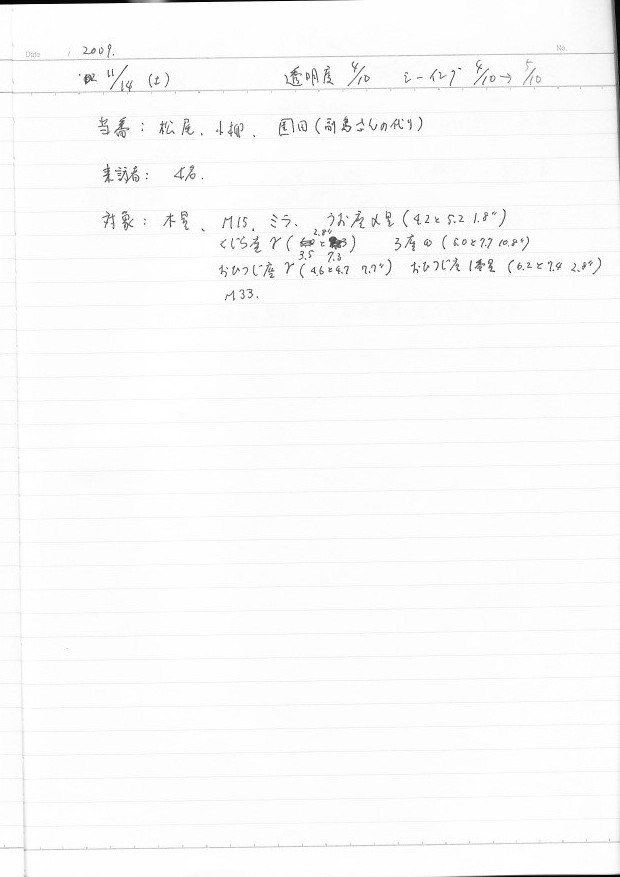 Date / 2009. No.
11/14 (土) 透明度 4/10 シーイング 4/10 → 5/10
当番: 松尾、小柳、園田(副島さんの代り)
来訪者: 4名.
対象: 木星、M15、ミラ、うお座α星(4.2と5.2 1.8")
くじら座γ(3.5と7.3 2.8") 3座 (6.0と7.7 10.8")
おひつじ座γ(4.6と4.7 7.7") おひつじ座1番星(6.2と7.4 2.8")
M33.